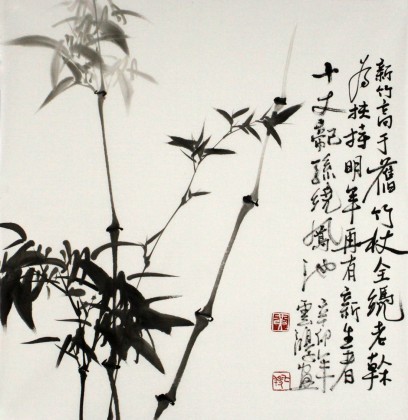 新竹高于舊竹枝全憑老幹
為扶持明年再有新生者
十丈龍孫繞鳳池
辛卯年
雲